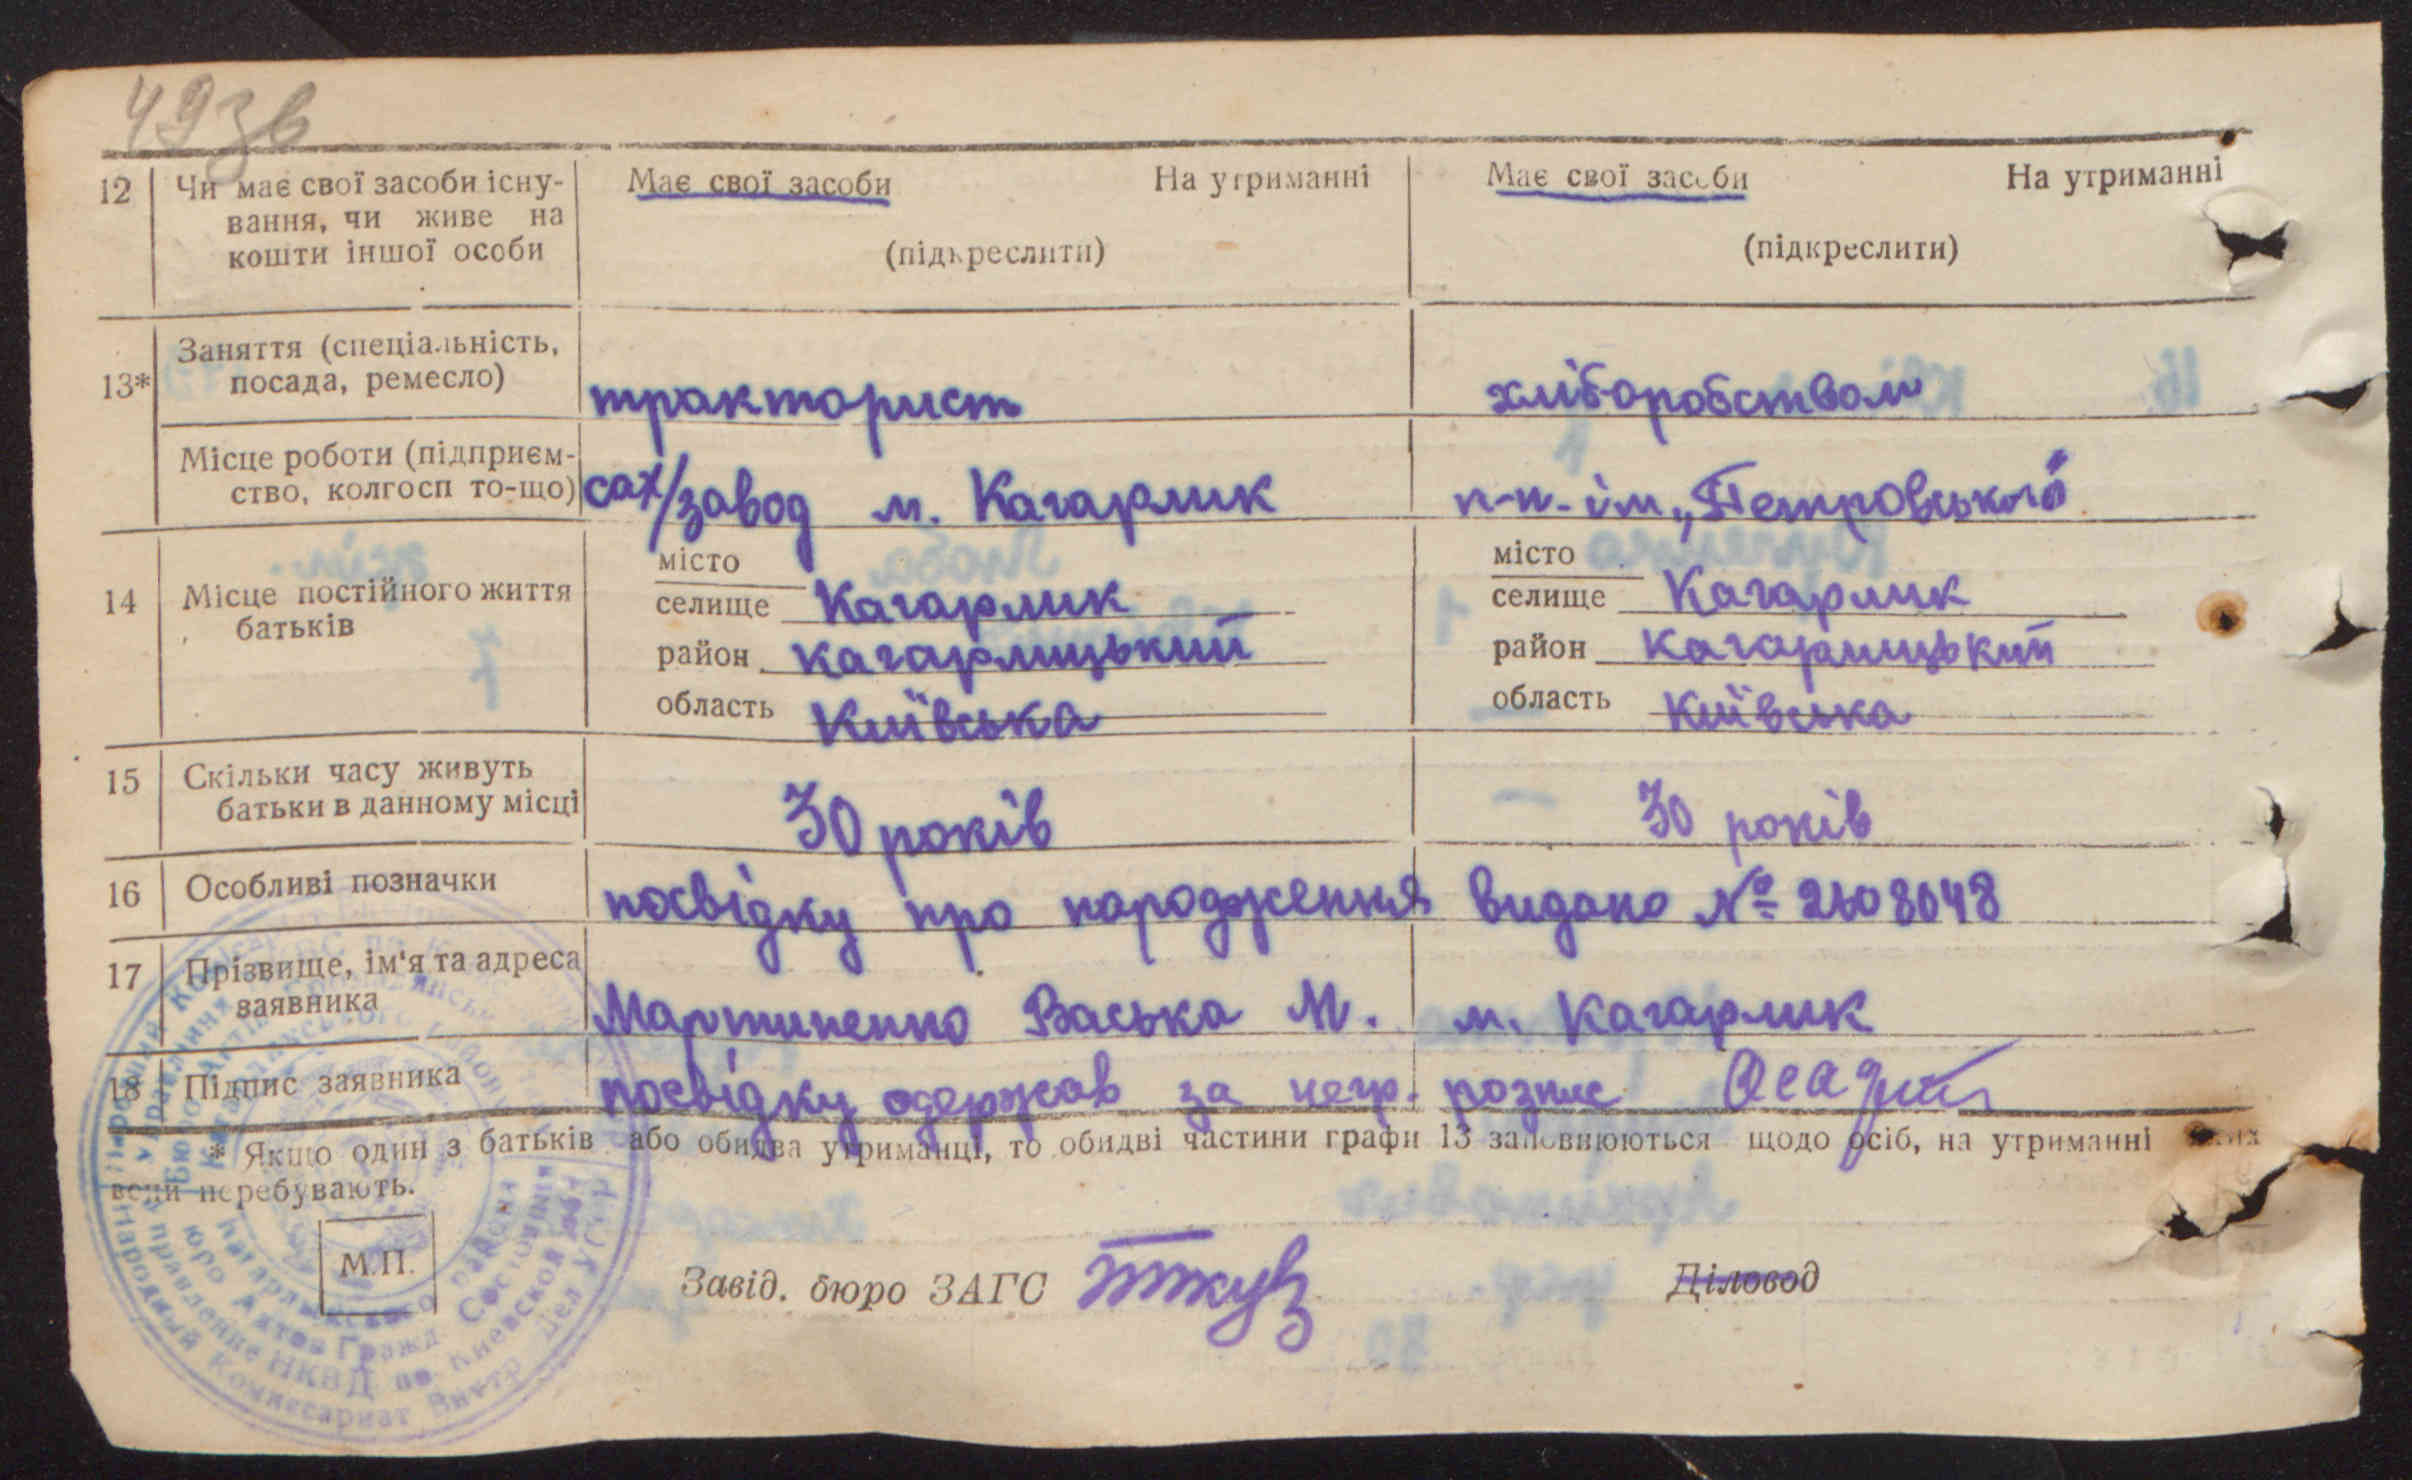 493в
12 Чи має свої засоби існу- Має свої засоби На утриманні Має свої засоби На утриманні
вання, чи живе на
кошти іншої особи (підкреслити) (підкреслити)
13* Заняття (спеціальність,
посада, ремесло) тракторист хліборобством
Місце роботи (підприєм-
ство, колгосп то-що) сах/завод м. Кагарлик к-п. ім „Петровського"
14 Місце постійного життя
батьків
місто місто
селище Кагарлик селище Кагарлик
район Кагарлицький район Кагарлицький
область Київська область Київська
15 Скільки часу живуть
батьки в данному місці 30 років 30 років
16 Особливі позначки посвідку про народження видано № 2608048
17 Прізвище, ім'я та адреса
заявника Мартиненко Васька М. м. Кагарлик
18 Підпис заявника посвідку одержав за негр. розпис
* Якщо один з батьків або обидва утриманці, то обидві частини графи 13 заповнюються щодо осіб, на утриманні яких
вони перебувають.
М.П. Завід. бюро ЗАГС Діловод
Народный Комиссариат Внутр. Дел УССР
Управление НКВД по Киевской
Бюро Актов Гражд. Состояния
Кагарлыкского района